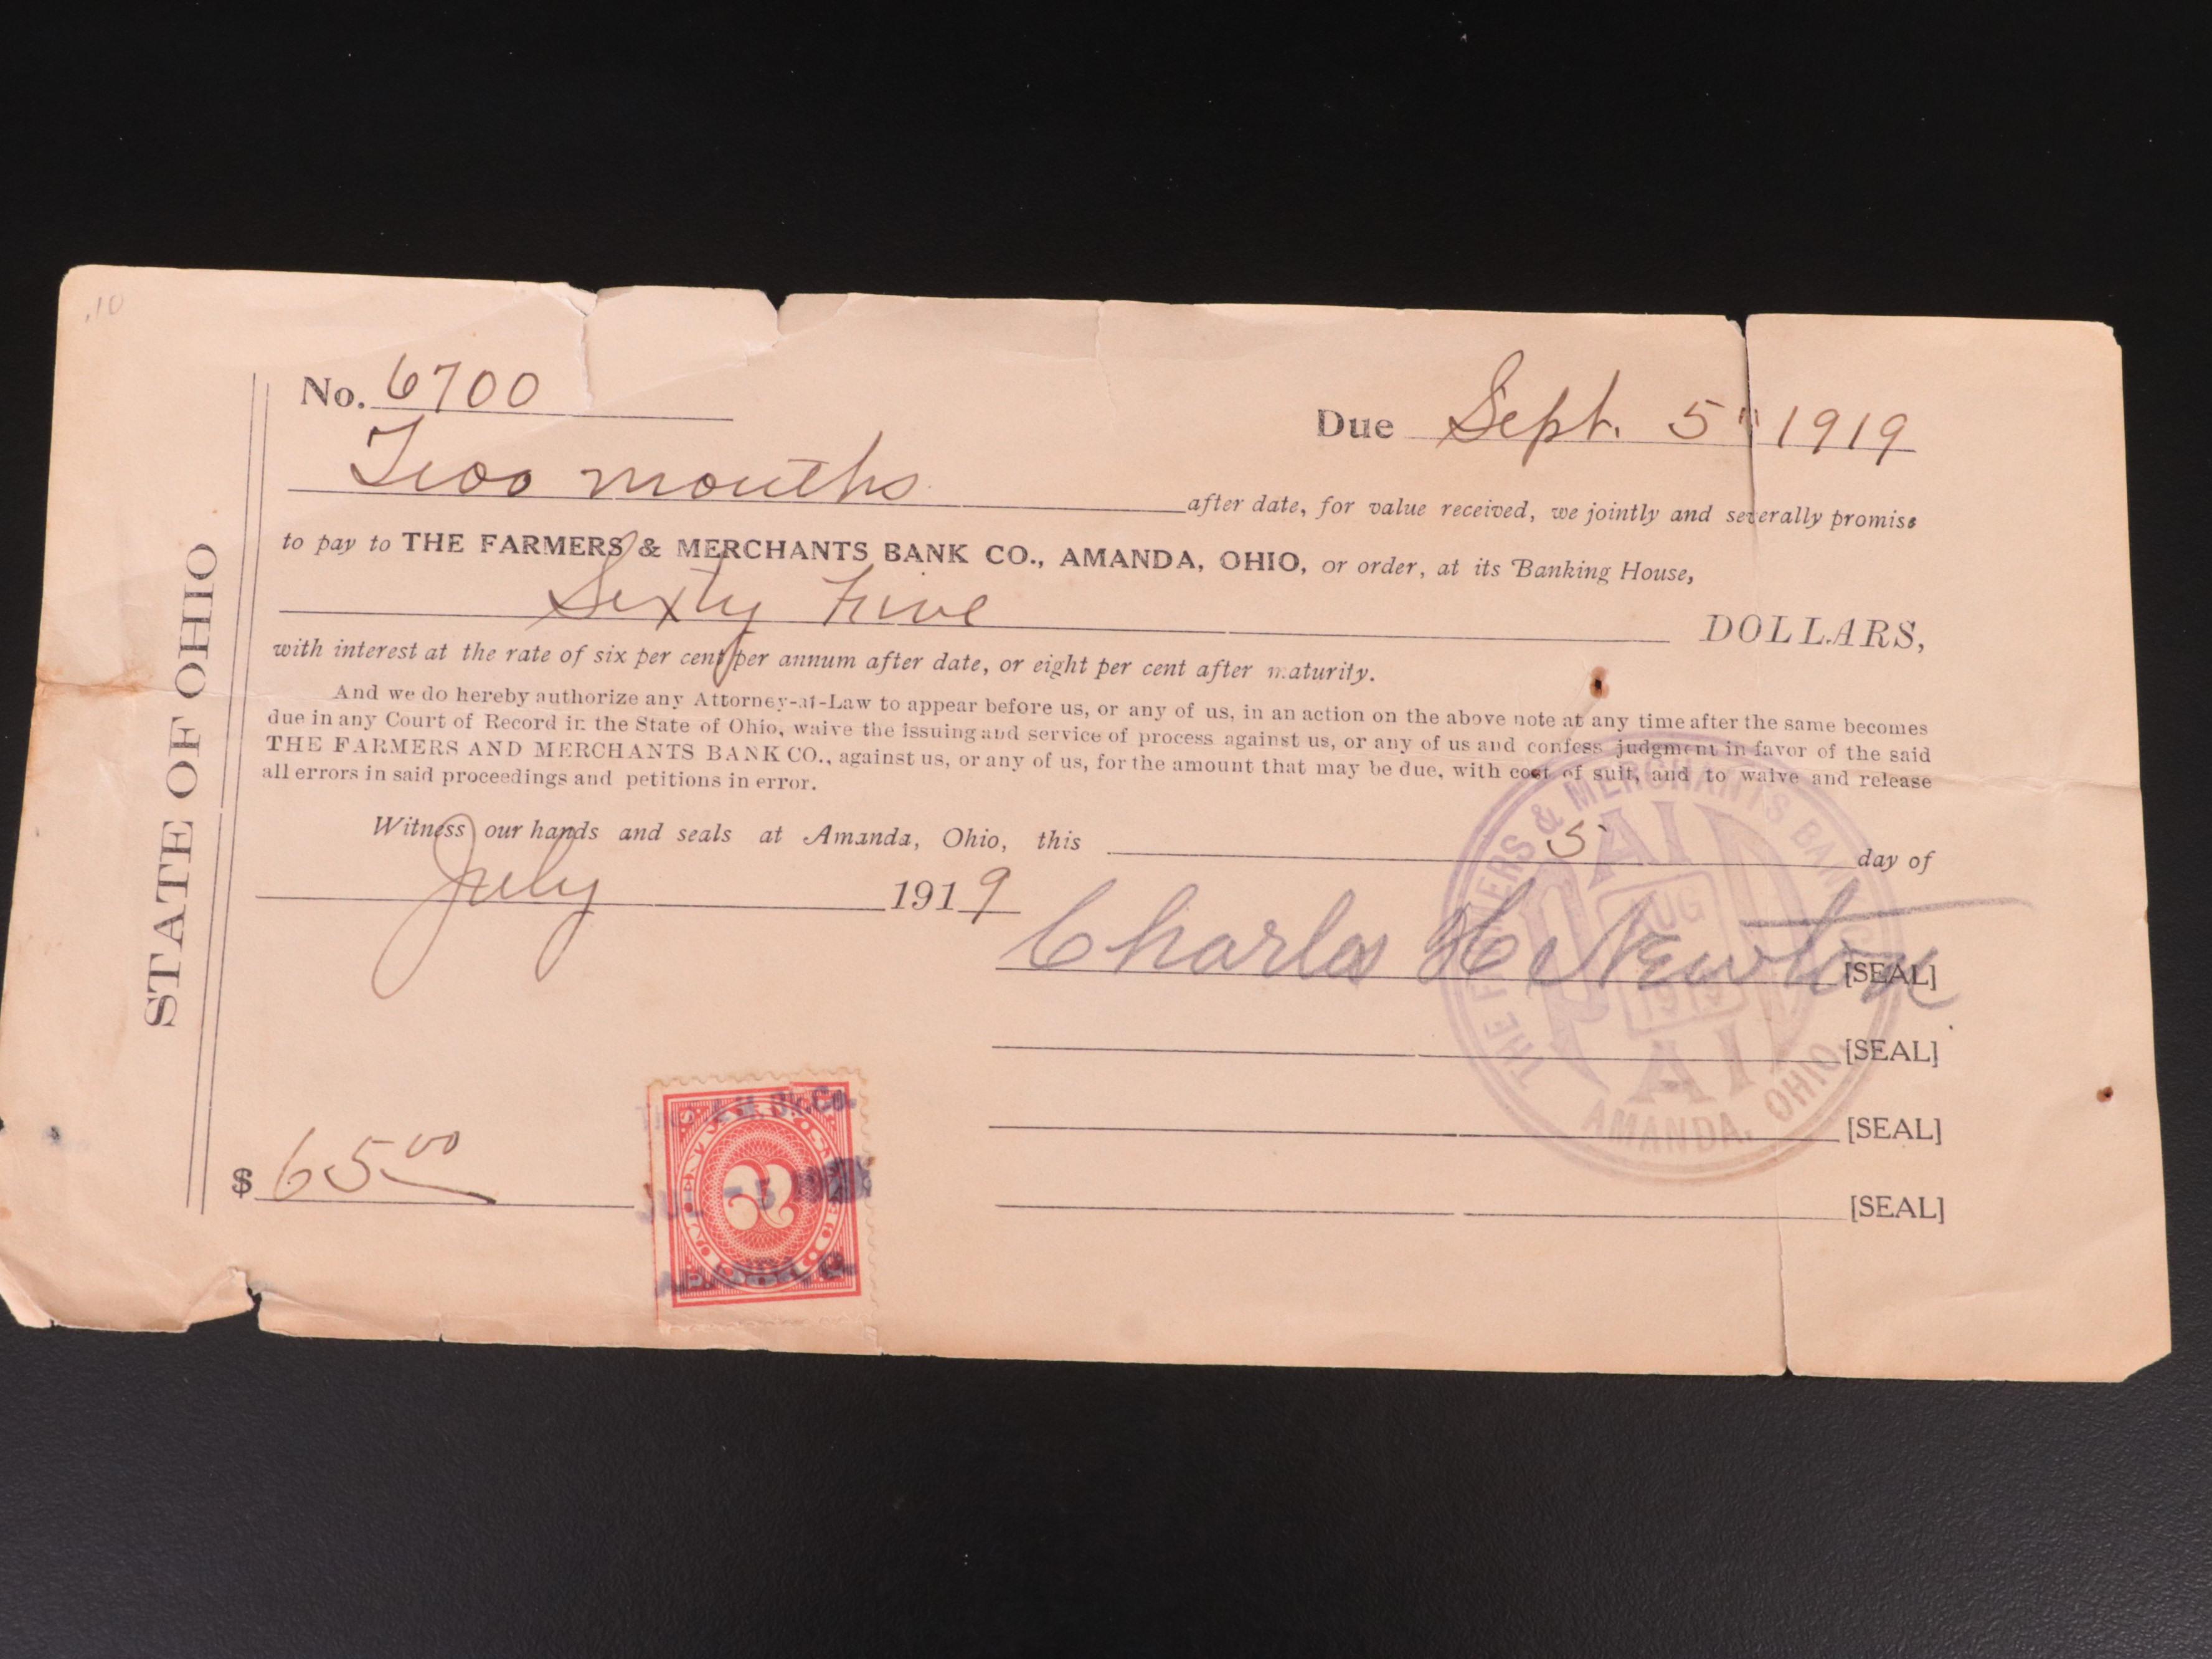 .10
No. 6700
Due Sept. 5" 1919
Two months after date, for value received, we jointly and severally promise
to pay to THE FARMERS & MERCHANTS BANK CO., AMANDA, OHIO, or order, at its Banking House,
Sixty Five DOLLARS,
with interest at the rate of six per cent per annum after date, or eight per cent after maturity.
And we do hereby authorize any Attorney-at-Law to appear before us, or any of us, in an action on the above note at any time after the same becomes
due in any Court of Record in the State of Ohio, waive the issuing and service of process against us, or any of us and confess judgment in favor of the said
THE FARMERS AND MERCHANTS BANK CO., against us, or any of us, for the amount that may be due, with cost of suit, and to waive and release
all errors in said proceedings and petitions in error.
Witness our hands and seals at Amanda, Ohio, this 5 day of
July 1919
Charles H Newton [SEAL]
[SEAL]
[SEAL]
[SEAL]
$ 65 00
STATE OF OHIO
THE FARMERS & MERCHANTS BANK CO.
PAID
AUG
1919
PAID
AMANDA, OHIO.
2
JUL -5